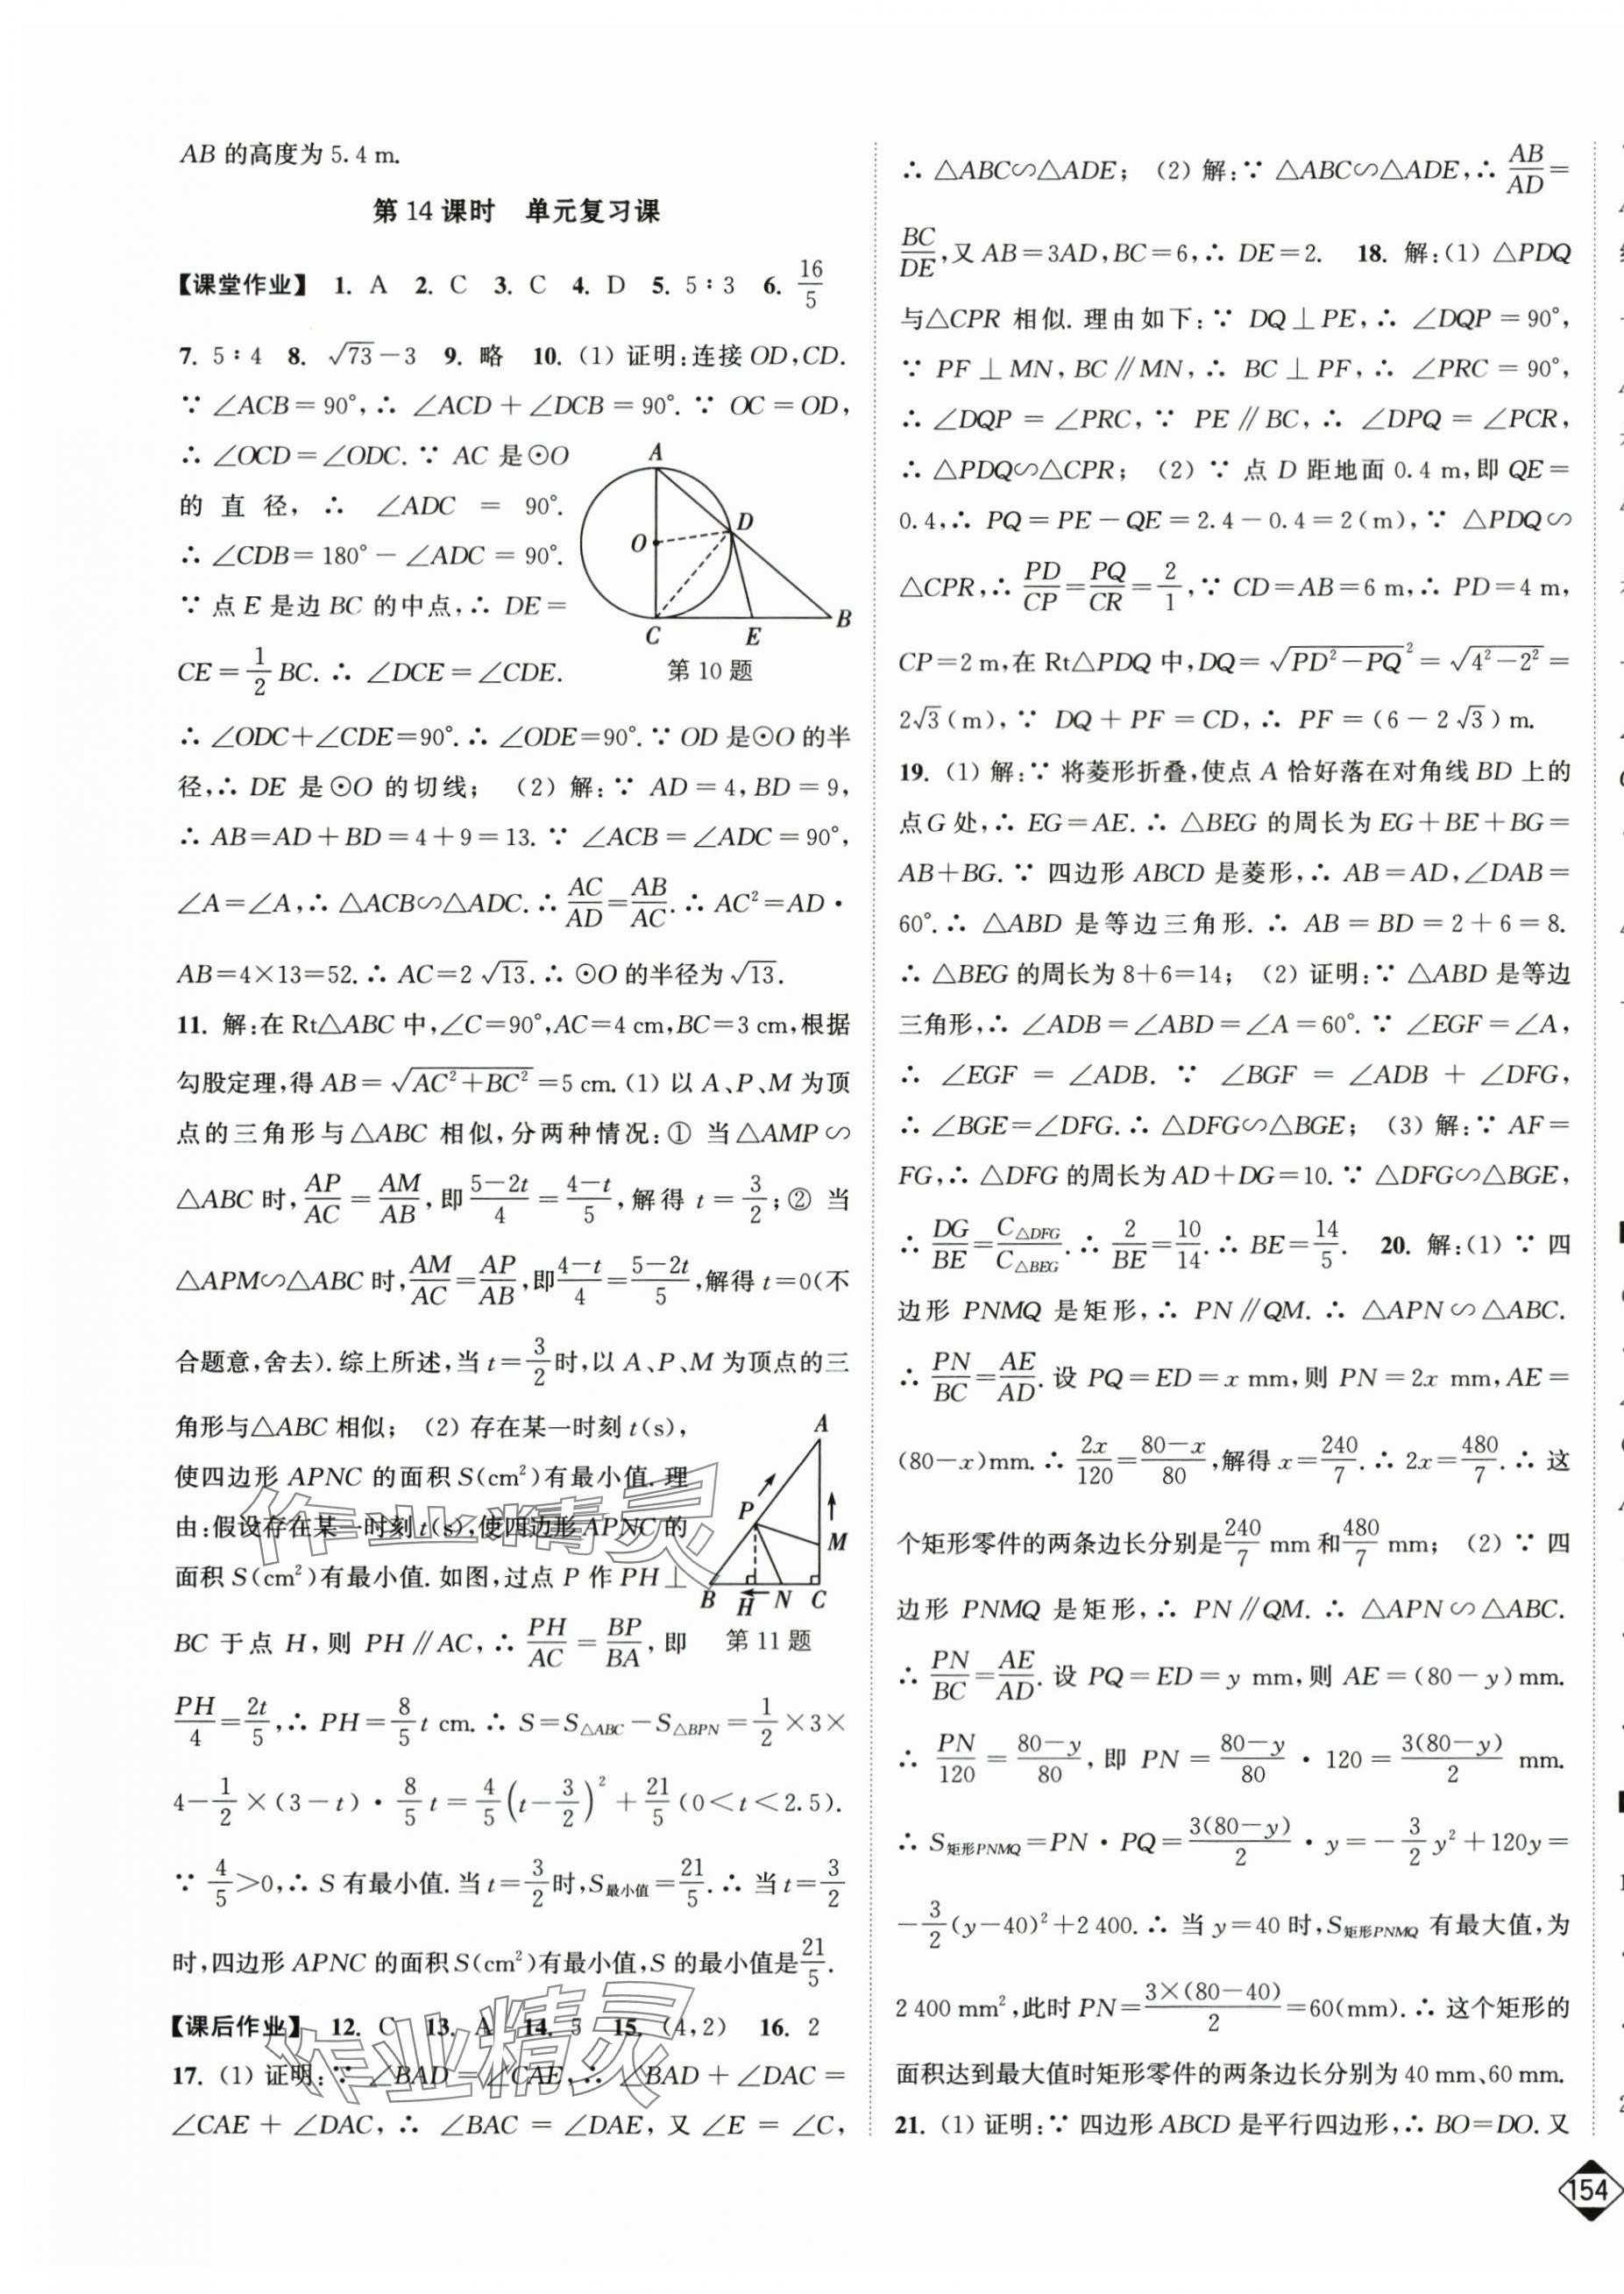 AB 的高度为 5.4 m.
第 14 课时　单元复习课
【课堂作业】 1. A 2. C 3. C 4. D 5. 5∶3 6. 16/5
7. 5∶4 8. √73－3 9. 略 10. (1) 证明:连接 OD,CD.
∵ ∠ACB＝90°,∴ ∠ACD＋∠DCB＝90°. ∵ OC＝OD,
∴ ∠OCD＝∠ODC. ∵ AC 是⊙O
的直径,∴ ∠ADC ＝ 90°.
∴ ∠CDB＝180°－∠ADC＝90°.
∵ 点 E 是边 BC 的中点,∴ DE＝
CE＝1/2 BC. ∴ ∠DCE＝∠CDE.
A
O
D
C
E
B
第 10 题
∴ ∠ODC＋∠CDE＝90°. ∴ ∠ODE＝90°. ∵ OD 是⊙O 的半
径,∴ DE 是⊙O 的切线; (2) 解:∵ AD＝4,BD＝9,
∴ AB＝AD＋BD＝4＋9＝13. ∵ ∠ACB＝∠ADC＝90°,
∠A＝∠A,∴ △ACB∽△ADC. ∴ AC/AD＝AB/AC. ∴ AC²＝AD·
AB＝4×13＝52. ∴ AC＝2√13. ∴ ⊙O 的半径为√13.
11. 解:在 Rt△ABC 中,∠C＝90°,AC＝4 cm,BC＝3 cm,根据
勾股定理,得 AB＝√(AC²＋BC²)＝5 cm. (1) 以 A、P、M 为顶
点的三角形与△ABC 相似,分两种情况:① 当△AMP∽
△ABC 时,AP/AC＝AM/AB,即(5－2t)/4＝(4－t)/5,解得 t＝3/2;② 当
△APM∽△ABC 时,AM/AC＝AP/AB,即(4－t)/4＝(5－2t)/5,解得 t＝0(不
合题意,舍去). 综上所述,当 t＝3/2时,以 A、P、M 为顶点的三
角形与△ABC 相似; (2) 存在某一时刻 t(s),
使四边形 APNC 的面积 S(cm²)有最小值. 理
由:假设存在某一时刻 t(s),使四边形 APNC 的
面积 S(cm²)有最小值. 如图,过点 P 作 PH⊥
BC 于点 H,则 PH∥AC,∴ PH/AC＝BP/BA,即
A
P
M
B
H
N
C
第 11 题
PH/4＝2t/5,∴ PH＝8/5 t cm. ∴ S＝S△ABC－S△BPN＝1/2×3×
4－1/2×(3－t)·8/5 t＝4/5(t－3/2)²＋21/5(0＜t＜2.5).
∵ 4/5＞0,∴ S 有最小值. 当 t＝3/2时,S最小值＝21/5. ∴ 当 t＝3/2
时,四边形 APNC 的面积 S(cm²)有最小值,S 的最小值是21/5.
【课后作业】 12. C 13. A 14. 5 15. (4,2) 16. 2
17. (1) 证明:∵ ∠BAD＝∠CAE,∴ ∠BAD＋∠DAC＝
∠CAE＋∠DAC,∴ ∠BAC＝∠DAE,又∠E＝∠C,
∴ △ABC∽△ADE; (2) 解:∵ △ABC∽△ADE,∴ AB/AD＝
BC/DE,又 AB＝3AD,BC＝6,∴ DE＝2. 18. 解:(1) △PDQ
与△CPR 相似. 理由如下:∵ DQ⊥PE,∴ ∠DQP＝90°,
∵ PF⊥MN,BC∥MN,∴ BC⊥PF,∴ ∠PRC＝90°,
∴ ∠DQP＝∠PRC,∵ PE∥BC,∴ ∠DPQ＝∠PCR,
∴ △PDQ∽△CPR; (2) ∵ 点 D 距地面 0.4 m,即 QE＝
0.4,∴ PQ＝PE－QE＝2.4－0.4＝2(m),∵ △PDQ∽
△CPR,∴ PD/CP＝PQ/CR＝2/1,∵ CD＝AB＝6 m,∴ PD＝4 m,
CP＝2 m,在 Rt△PDQ 中,DQ＝√(PD²－PQ)²＝√(4²－2²)＝
2√3(m),∵ DQ＋PF＝CD,∴ PF＝(6－2√3)m.
19. (1) 解:∵ 将菱形折叠,使点 A 恰好落在对角线 BD 上的
点G 处,∴ EG＝AE. ∴ △BEG 的周长为 EG＋BE＋BG＝
AB＋BG. ∵ 四边形 ABCD 是菱形,∴ AB＝AD,∠DAB＝
60°. ∴ △ABD 是等边三角形. ∴ AB＝BD＝2＋6＝8.
∴ △BEG 的周长为 8＋6＝14; (2) 证明:∵ △ABD 是等边
三角形,∴ ∠ADB＝∠ABD＝∠A＝60°. ∵ ∠EGF＝∠A,
∴ ∠EGF ＝ ∠ADB. ∵ ∠BGF ＝ ∠ADB ＋ ∠DFG,
∴ ∠BGE＝∠DFG. ∴ △DFG∽△BGE; (3) 解:∵ AF＝
FG,∴ △DFG 的周长为 AD＋DG＝10. ∵ △DFG∽△BGE,
∴ DG/BE＝C△DFG/C△BEG. ∴ 2/BE＝10/14. ∴ BE＝14/5. 20. 解:(1) ∵ 四
边形 PNMQ 是矩形,∴ PN∥QM. ∴ △APN∽△ABC.
∴ PN/BC＝AE/AD. 设 PQ＝ED＝x mm,则 PN＝2x mm,AE＝
(80－x)mm. ∴ 2x/120＝(80－x)/80,解得 x＝240/7. ∴ 2x＝480/7. ∴ 这
个矩形零件的两条边长分别是240/7 mm 和480/7 mm; (2) ∵ 四
边形 PNMQ 是矩形,∴ PN∥QM. ∴ △APN∽△ABC.
∴ PN/BC＝AE/AD. 设 PQ＝ED＝y mm,则 AE＝(80－y)mm.
∴ PN/120＝(80－y)/80,即 PN＝(80－y)/80·120＝3(80－y)/2 mm.
∴ S矩形PNMQ＝PN·PQ＝3(80－y)/2·y＝－3/2 y²＋120y＝
－3/2(y－40)²＋2 400. ∴ 当 y＝40 时,S矩形PNMQ 有最大值,为
2 400 mm²,此时 PN＝3×(80－40)/2＝60(mm). ∴ 这个矩形的
面积达到最大值时矩形零件的两条边长分别为 40 mm、60 mm.
21. (1) 证明:∵ 四边形 ABCD 是平行四边形,∴ BO＝DO. 又
154
作业精灵
作业精灵